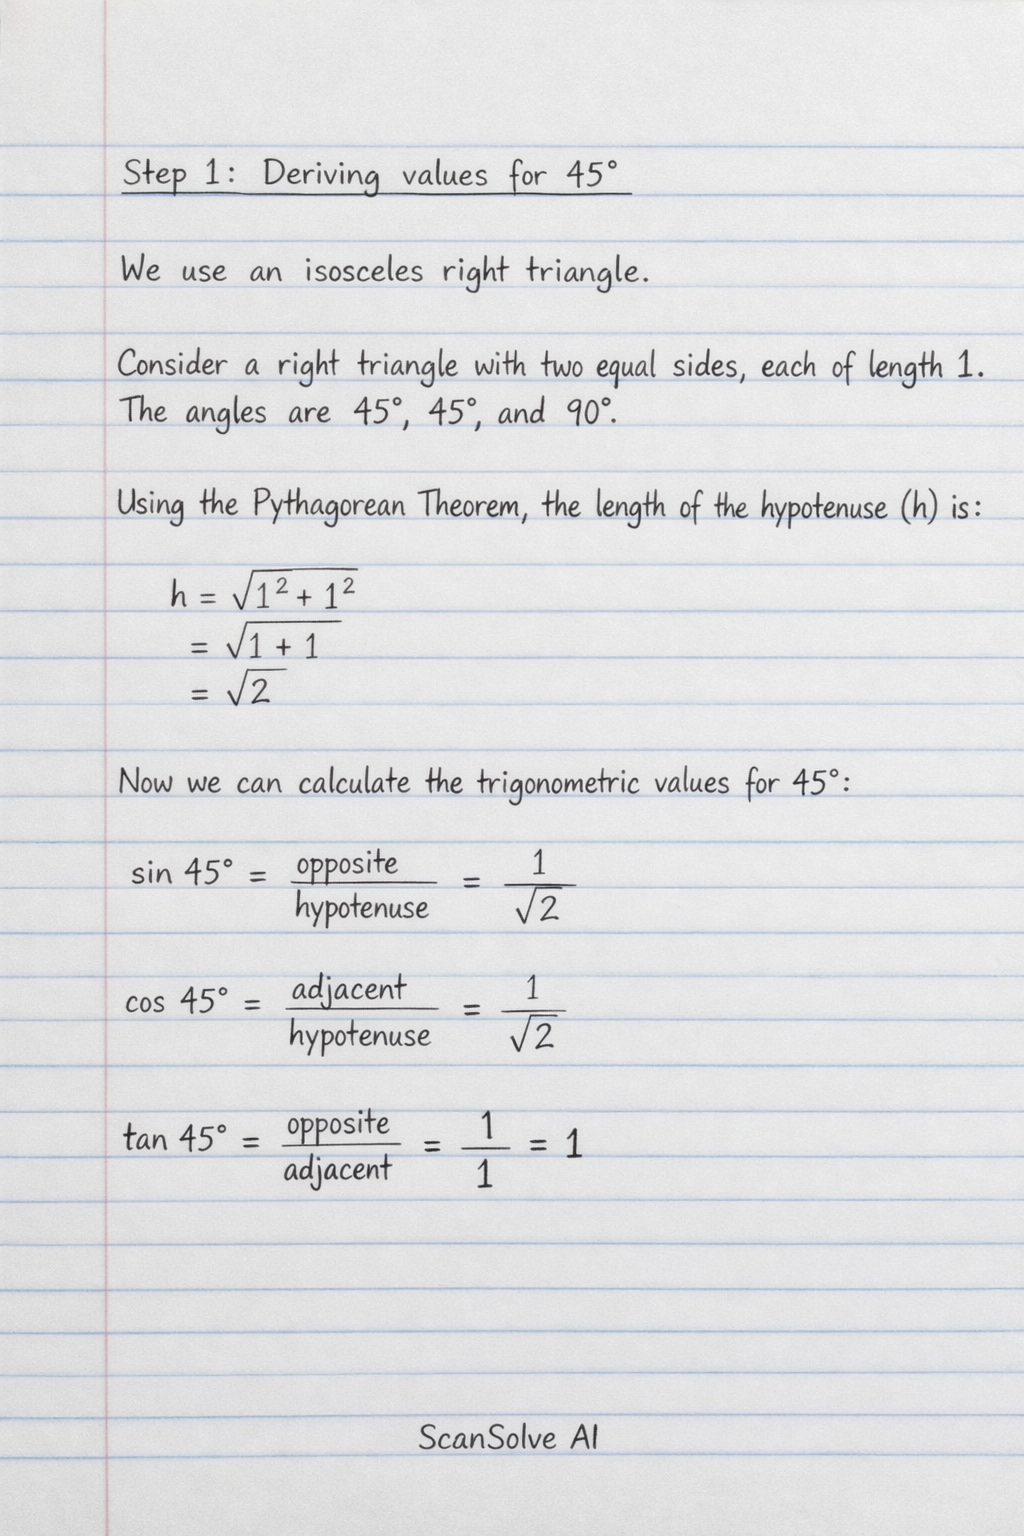 Step 1: Deriving values for 45°
We use an isosceles right triangle.
Consider a right triangle with two equal sides, each of length 1.
The angles are 45°, 45°, and 90°.
Using the Pythagorean Theorem, the length of the hypotenuse (h) is:
h = √(1² + 1²)
= √(1 + 1)
= √2
Now we can calculate the trigonometric values for 45°:
sin 45° = opposite/hypotenuse = 1/√2
cos 45° = adjacent/hypotenuse = 1/√2
tan 45° = opposite/adjacent = 1/1 = 1
ScanSolve AI